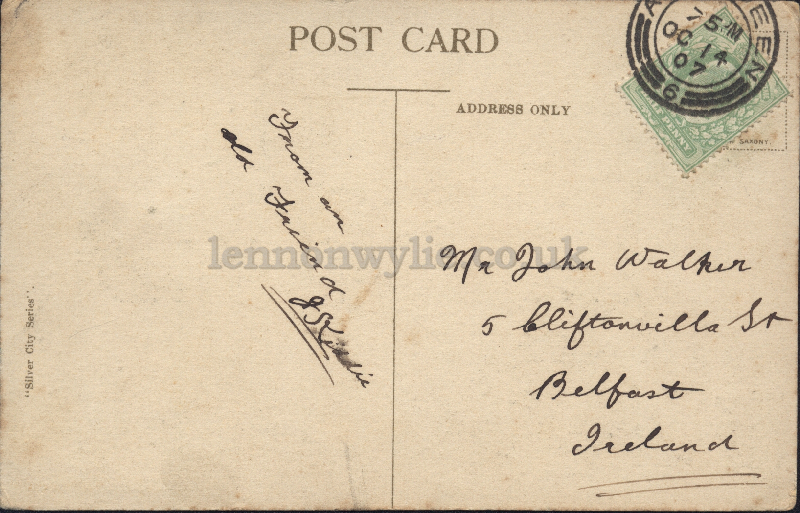 POST CARD
ADDRESS ONLY
EEN
75M
OC 14
07
6
PENNY
SAXONY.
From an
old Friend
J S
lennonwylie.co.uk
Mr John Walker
5 Cliftonvilla St
Belfast
Ireland
"Silver City Series".